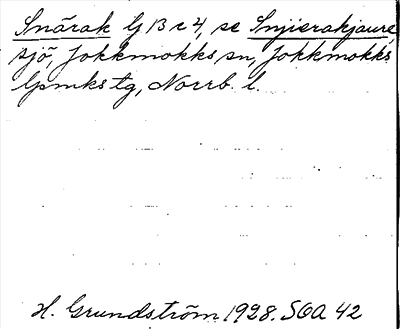 Snärak Lj 13 c 4, se Snjierakjaure,
sjö, Jokkmokks sn, Jokkmokks
lpmks tg, Norrb. l.
H. Grundström 1928. SOA 42